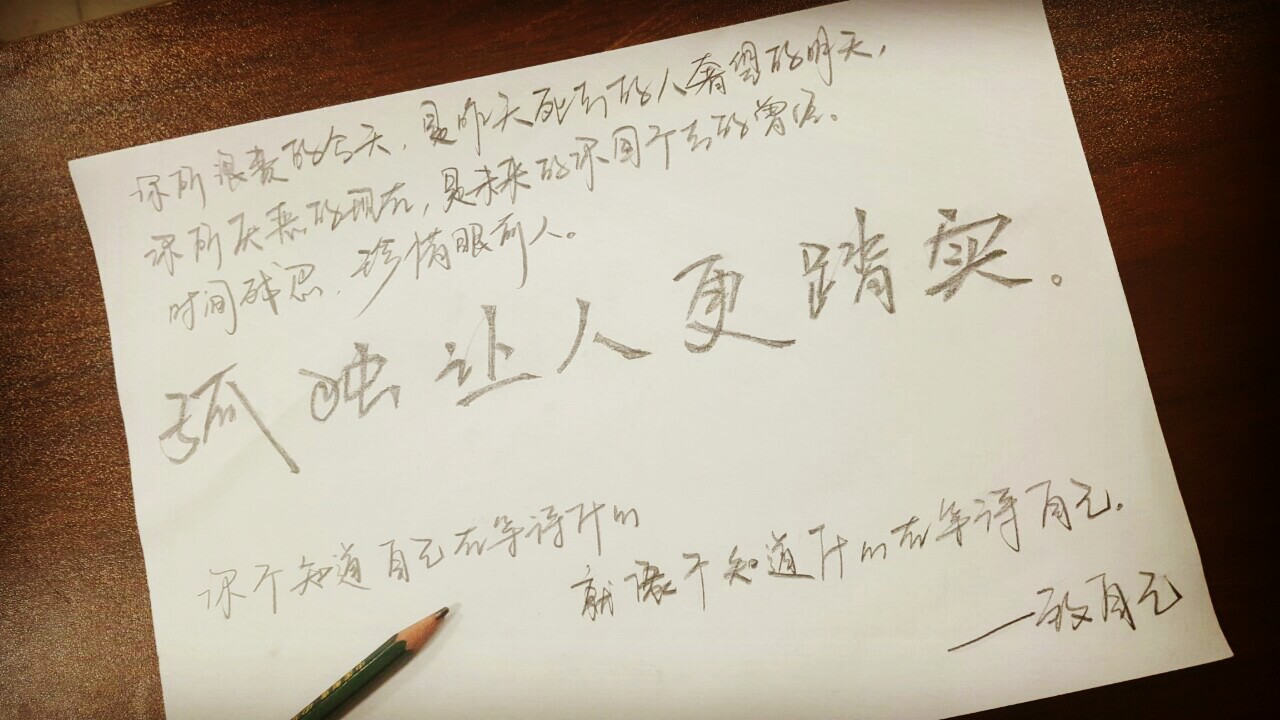 你所浪费的今天，是昨天死去的人奢望的明天，
你所厌恶的现在，是未来的你回不去的曾经。
时间残忍，珍惜眼前人。
孤独让人更踏实。
你不知道自己在等待什么
就像不知道什么在等待自己。
——致自己